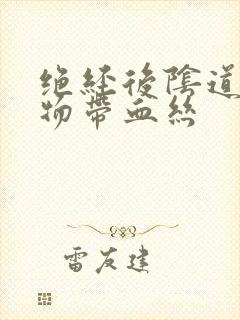 绝經後陰道
物帶血絲
雷友建